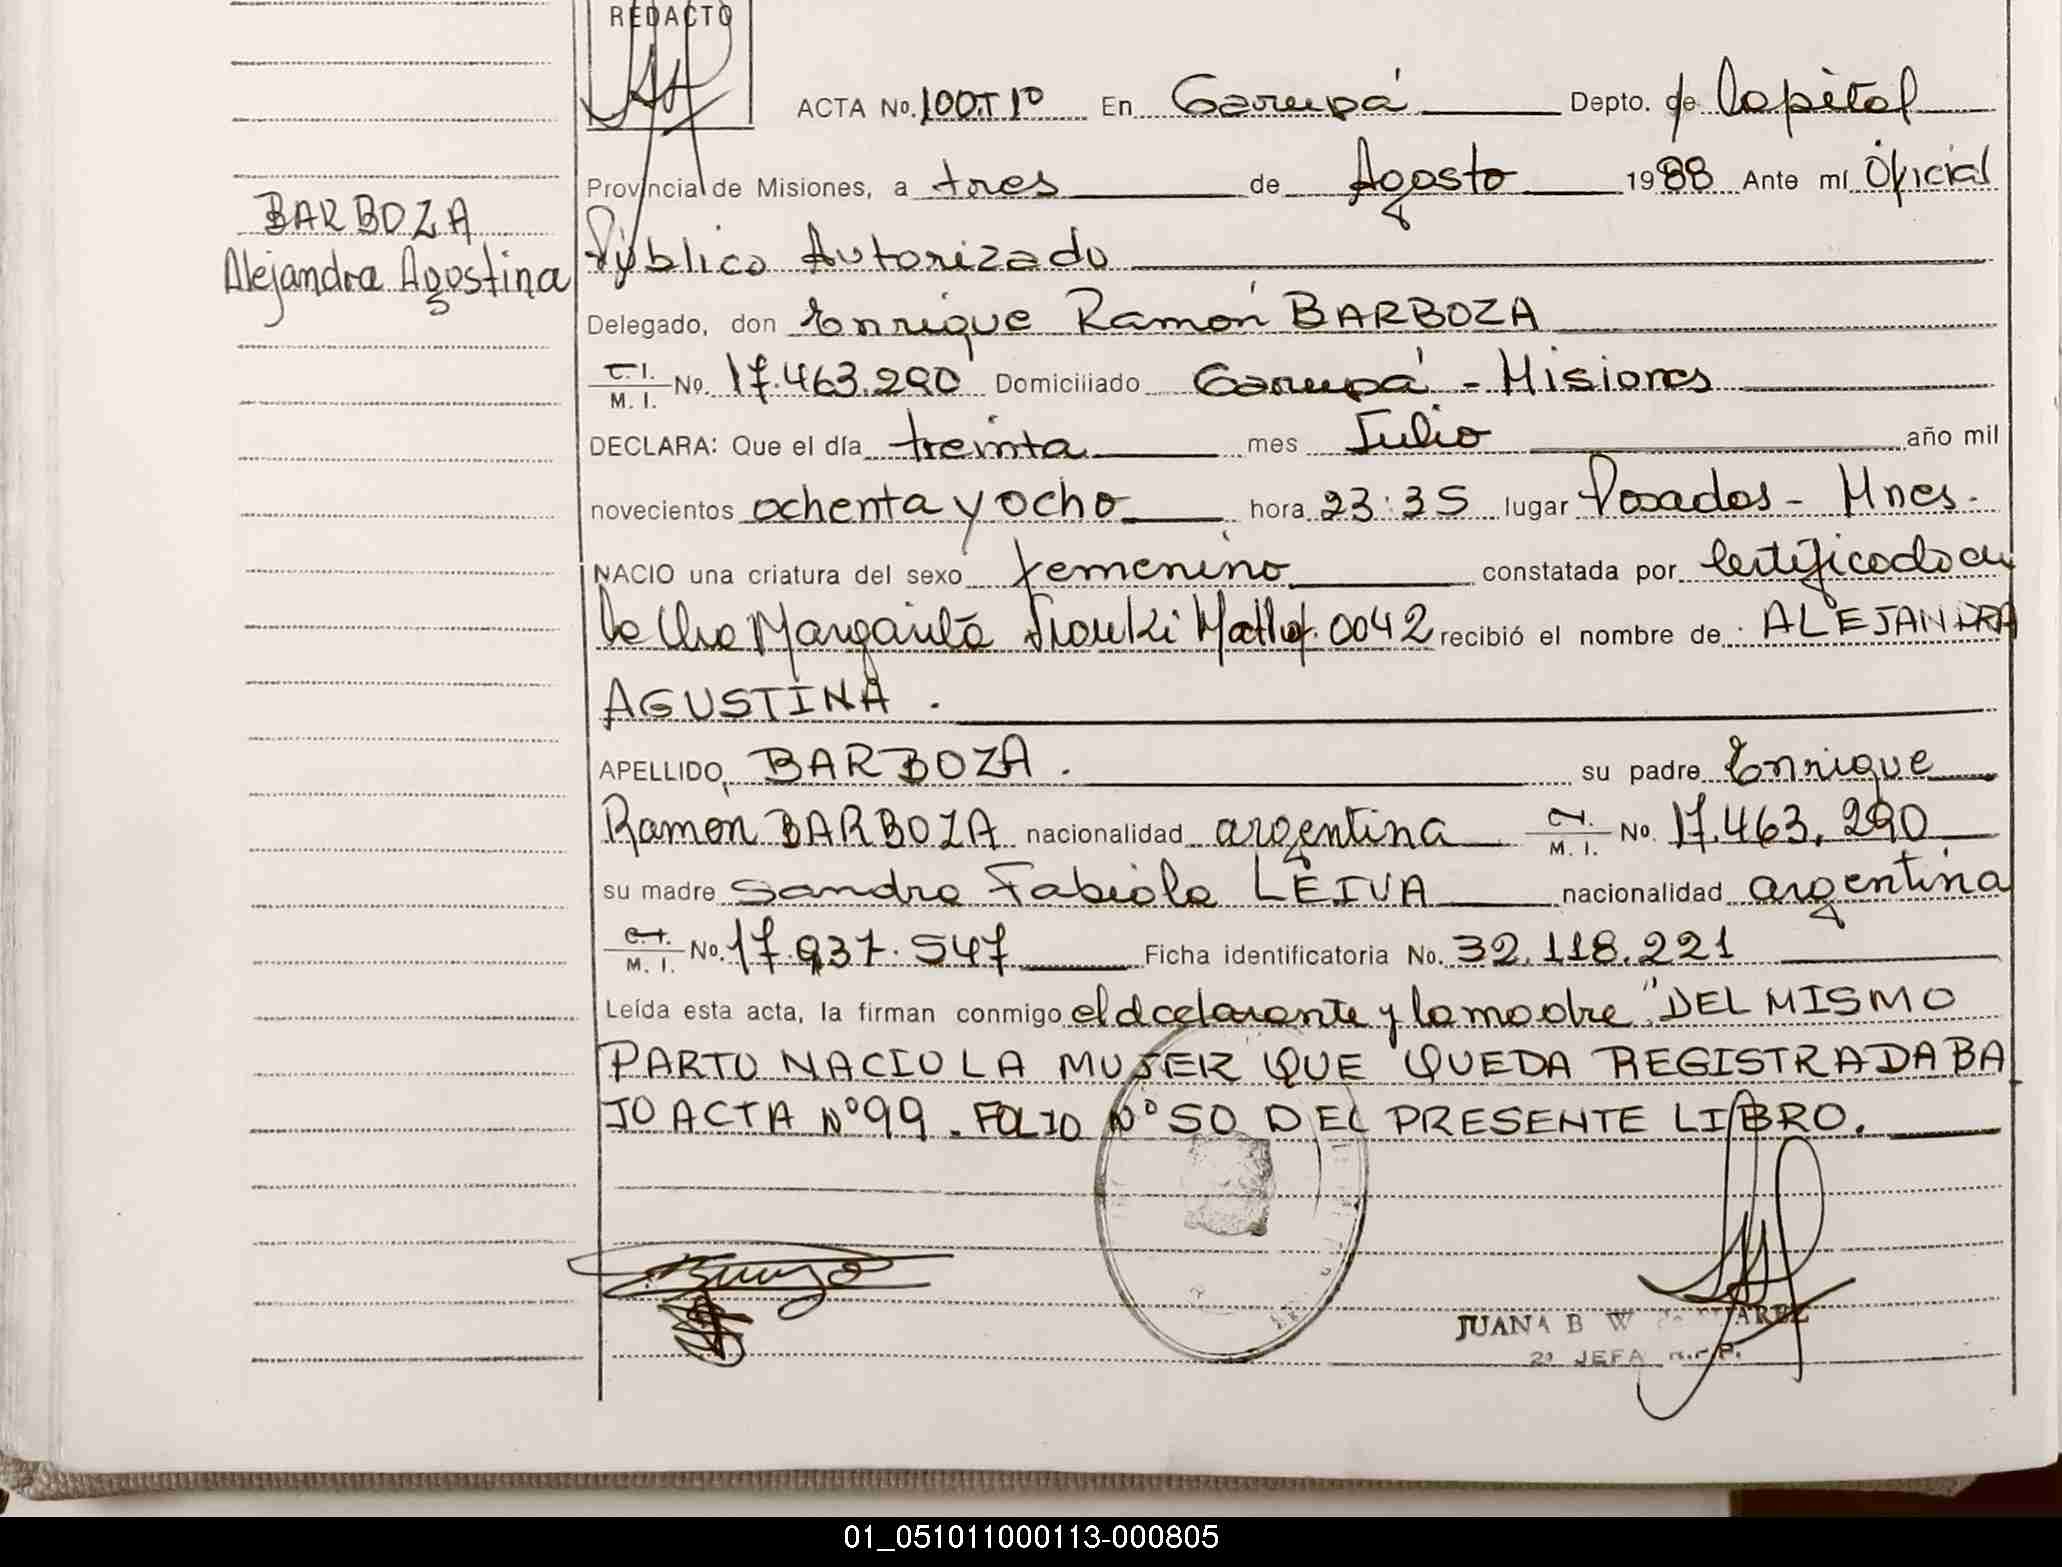 REDACTO
ACTA No. 100.T 1º En Garupá Depto. de Capital
Provincial de Misiones, a tres de Agosto 1988 Ante mí Oficial
BARBOZA
Público Autorizado
Alejandra Agostina
Delegado, don Enrique Ramón BARBOZA
C.I. M. I. No. 17.463.290 Domiciliado Garupá - Misiones
DECLARA: Que el día treinta mes Julio año mil
novecientos ochenta y ocho hora 23:35 lugar Posadas - Mnes.
NACIO una criatura del sexo femenino constatada por Certificado de
Margarita 0042 recibió el nombre de ALEJANDRA
AGUSTINA.
APELLIDO BARBOZA. su padre Enrique
Ramón BARBOZA nacionalidad argentina C.I. M. I. No. 17.463.290
su madre Sandra Fabiola LEIVA nacionalidad argentina
C.I. M. I. No. 17.937.547 Ficha identificatoria No. 32.118.221
Leída esta acta, la firman conmigo el declarante y la madre "DEL MISMO
PARTO NACIO LA MUJER QUE QUEDA REGISTRADA BA
JO ACTA Nº 99. FOLIO Nº 50 DEL PRESENTE LIBRO.
JUANA B W
2º JEFA
01_051011000113-000805